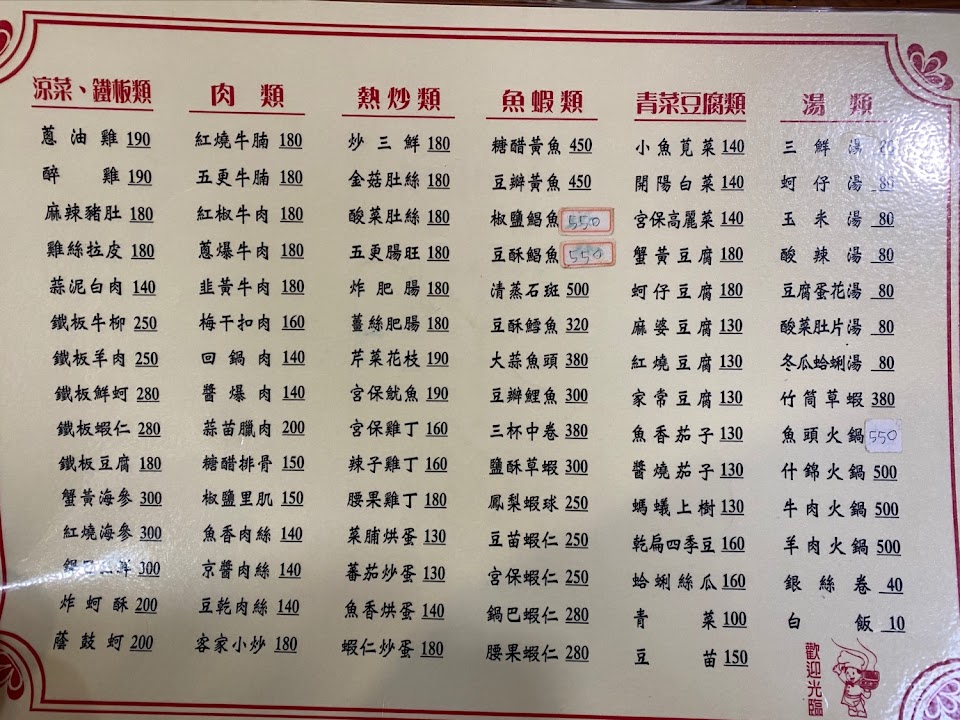 涼菜、鐵板類
蔥油雞 190
醉雞 190
麻辣豬肚 180
雞絲拉皮 180
蒜泥白肉 140
鐵板牛柳 250
鐵板羊肉 250
鐵板鮮蚵 280
鐵板蝦仁 280
鐵板豆腐 180
蟹黃海參 300
紅燒海參 300
鍋巴三鮮 300
炸蚵酥 200
蔭鼓蚵 200
肉類
紅燒牛腩 180
五更牛腩 180
紅椒牛肉 180
蔥爆牛肉 180
韭黃牛肉 180
梅干扣肉 160
回鍋肉 140
醬爆肉 140
蒜苗臘肉 200
糖醋排骨 150
椒鹽里肌 150
魚香肉絲 140
京醬肉絲 140
豆乾肉絲 140
客家小炒 180
熱炒類
炒三鮮 180
金菇肚絲 180
酸菜肚絲 180
五更腸旺 180
炸肥腸 180
薑絲肥腸 180
芹菜花枝 190
宮保魷魚 190
宮保雞丁 160
辣子雞丁 160
腰果雞丁 180
菜脯烘蛋 130
蕃茄炒蛋 130
魚香烘蛋 140
蝦仁炒蛋 180
魚蝦類
糖醋黃魚 450
豆瓣黃魚 450
椒鹽鯧魚 550
豆酥鯧魚 550
清蒸石斑 500
豆酥鱈魚 320
大蒜魚頭 380
豆瓣鯉魚 300
三杯中卷 380
鹽酥草蝦 300
鳳梨蝦球 250
豆苗蝦仁 250
宮保蝦仁 250
鍋巴蝦仁 280
腰果蝦仁 280
青菜豆腐類
小魚莧菜 140
開陽白菜 140
宮保高麗菜 140
蟹黃豆腐 180
蚵仔豆腐 180
麻婆豆腐 130
紅燒豆腐 130
家常豆腐 130
魚香茄子 130
醬燒茄子 130
螞蟻上樹 130
乾扁四季豆 160
蛤蜊絲瓜 160
青菜 100
豆苗 150
湯類
三鮮湯 80
蚵仔湯 80
玉米湯 80
酸辣湯 80
豆腐蛋花湯 80
酸菜肚片湯 80
冬瓜蛤蜊湯 80
竹筒草蝦 380
魚頭火鍋 550
什錦火鍋 500
牛肉火鍋 500
羊肉火鍋 500
銀絲卷 40
白飯 10
歡迎光臨